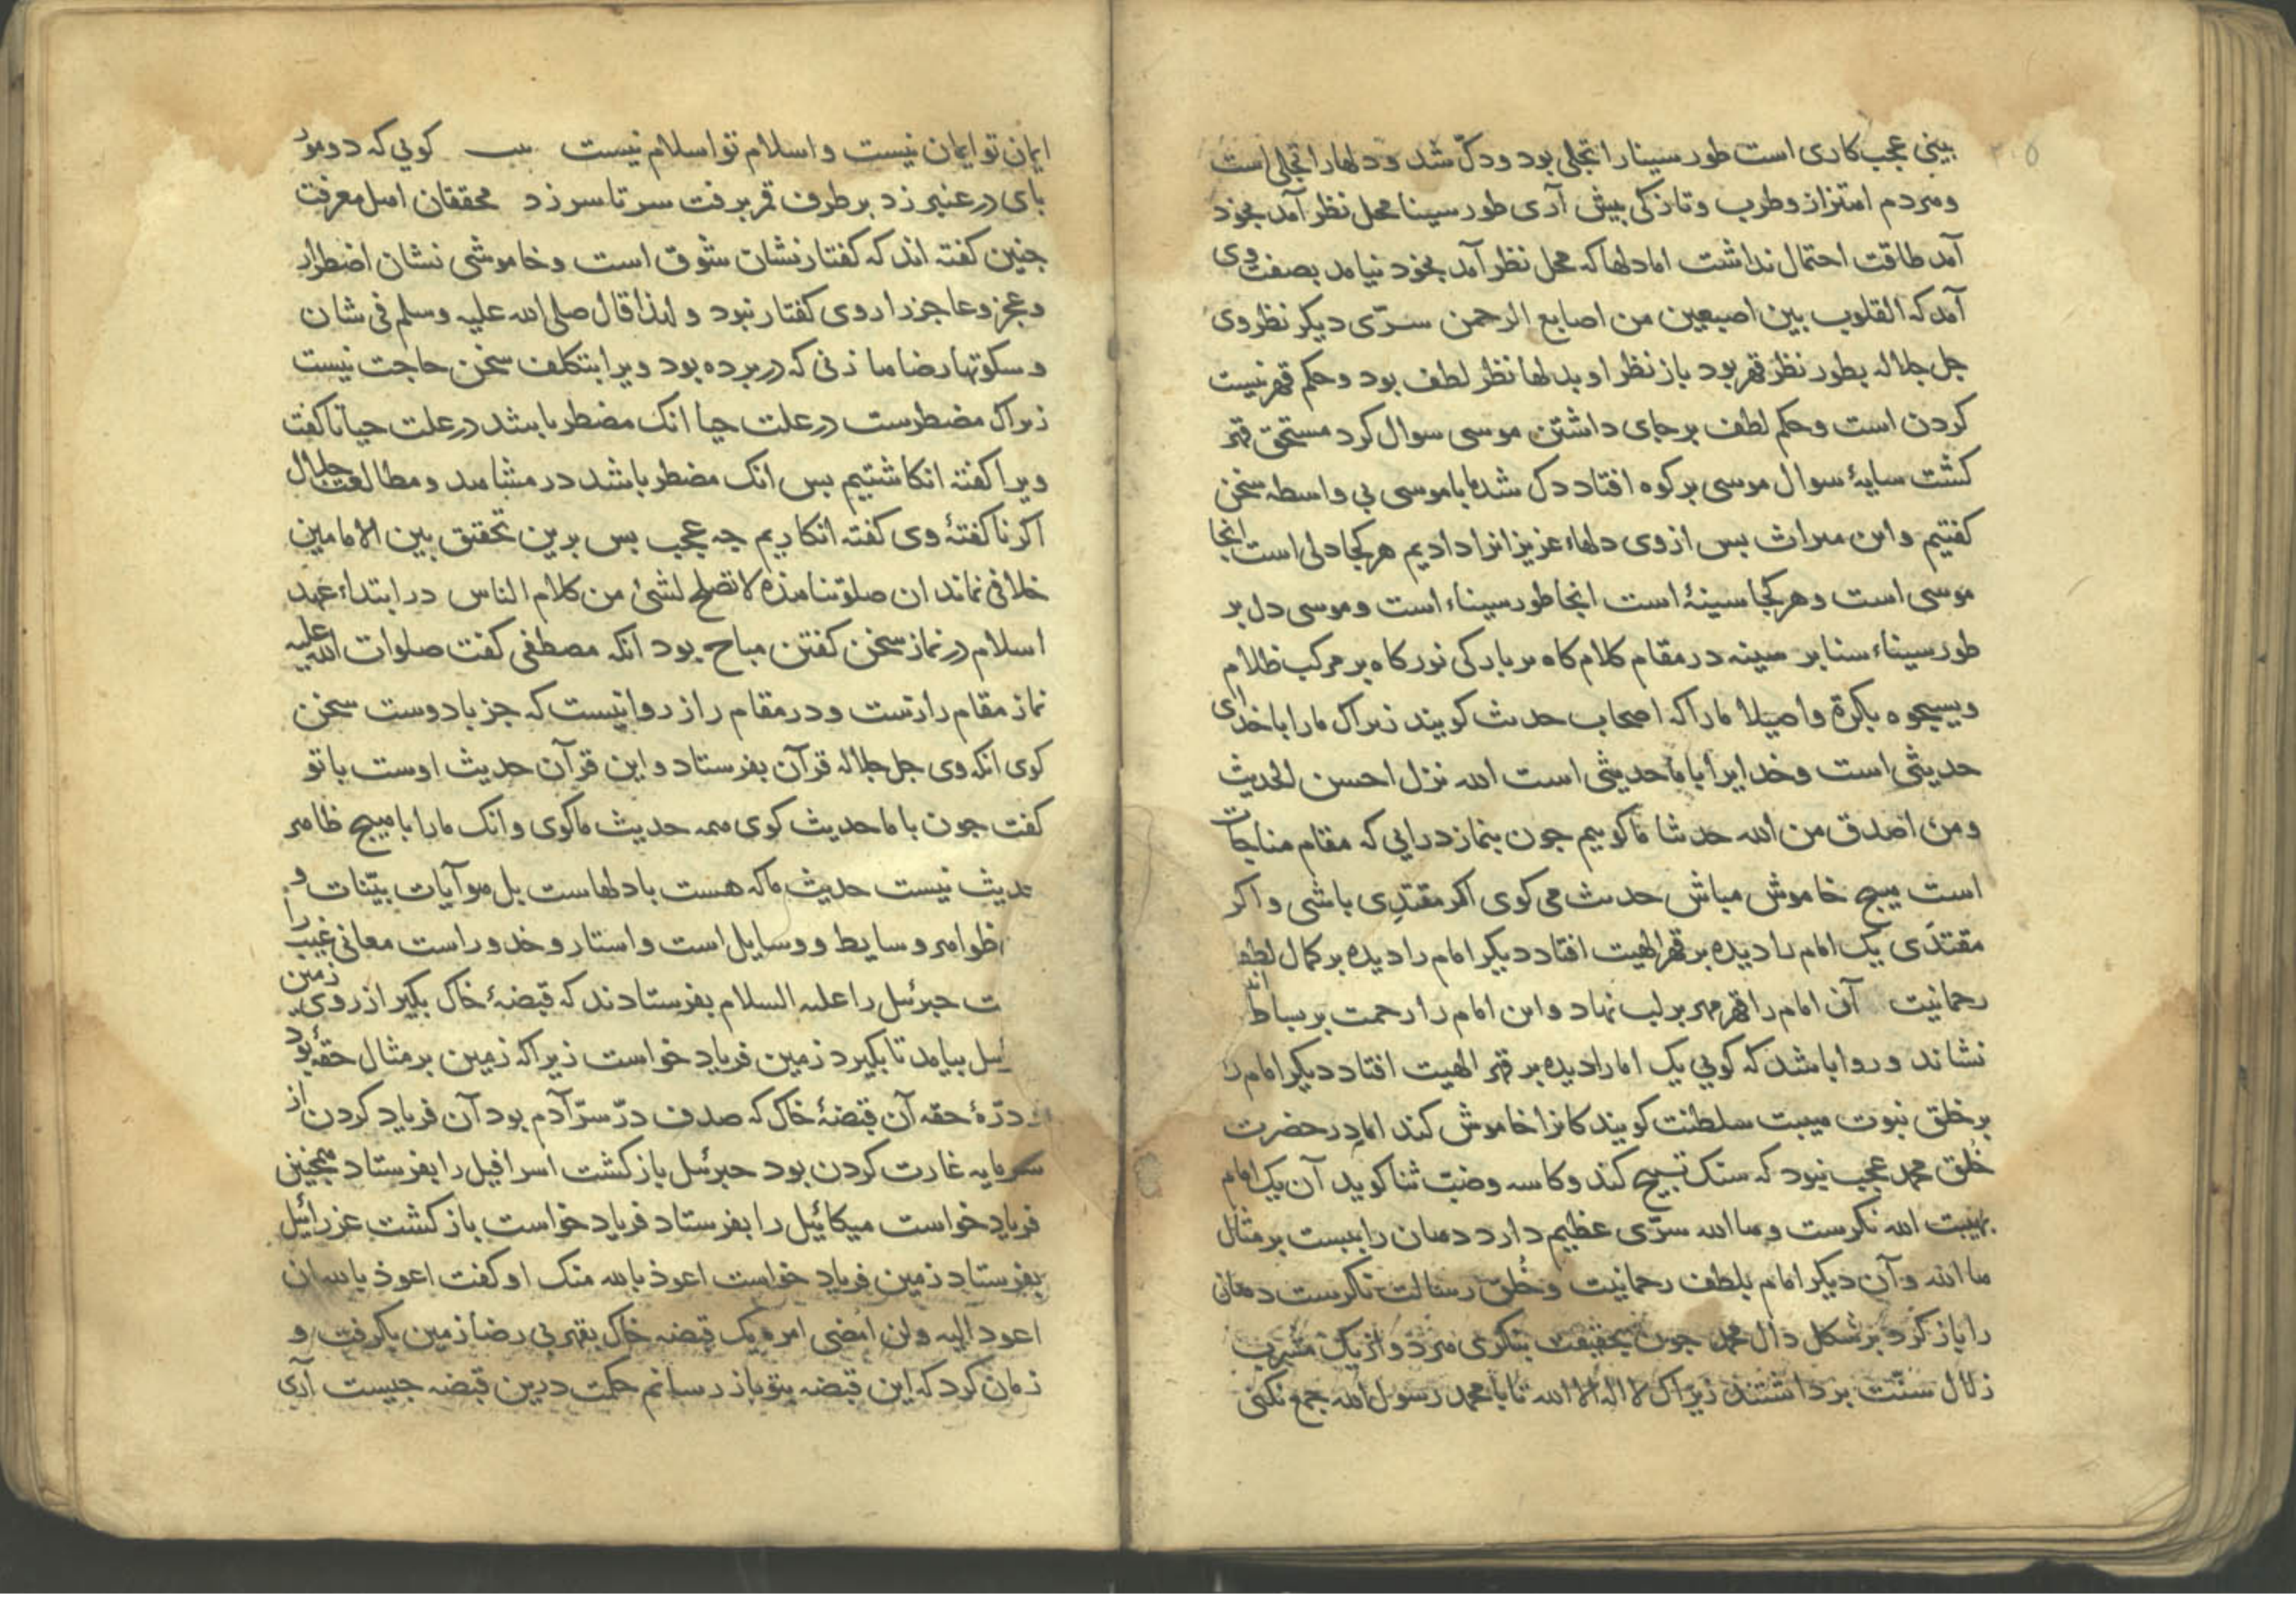 بینی عجب کاری است طور سینا را تجلی بود و دک شد و دلها را تجلی است
و هر دم اهتزاز و طرب و تازکی بیش آری طور سینا محل نظر آمد بخود
آمد طاقت احتمال نداشت اما دلها که محل نظر آمد بخود نیامد بصفت وی
آمد که القلوب بین اصبعین من اصابع الرحمن سرّی دیکر نظر وی
جل جلاله بطور نظر قهر بود باز نظر او بدلها نظر لطف بود و حکم قهر نیست
کردن است و حکم لطف بر جای داشتن موسی سوال کرد مستحق قهر
کشت سایهٔ سوال موسی بر کوه افتاد دک شد ما با موسی بی واسطه سخن
کفتیم و این میراث بس از وی دلهاء عزیزانرا دادیم هر کجا دلی است انجا
موسی است و هر کجا سینهٔ است انجا طور سیناء است و موسی دل بر
طور سیناء سنا بر سینه در مقام کلام کاه بر بارکی نور کاه بر مرکب ظلام
ویسبحوه بکرة واصیلا ما را که اصحاب حدیث کویند زیراک ما را با خدای
حدیثی است و خدایرا با ما حدیثی است الله نزل احسن الحدیث
ومن اصدق من الله حدیثا ما کوییم جون بنماز درایی که مقام مناجات
است هیج خاموش مباش حدیث می کوی اکر مقتدِی باشی و اکر
مقتدَی یک امام را دیده بر قهر الهیت افتاد دیکر امام را دیده بر کمال لطف
رحمانیت آن امام را قهر مهر بر لب نهاد و این امام را رحمت بر بساط
نشاند و روا باشد که کویی یک امام را دیده بر قهر الهیت افتاد دیکر امام را
بر خلق نبوت هیبت سلطنت کویندکانرا خاموش کند اما در حضرت
خُلق محمد عجب نبود که سنک تسبیح کند و کاسه وضبّ ثنا کوید آن یک امام
بهیبت الله نکرست و هاالله سرّی عظیم دارد دهان را ببست بر مثال
ها الله و آن دیکر امام بلطف رحمانیت و خُلق رسالت نکرست دهان
را باز کرد بر شکل دال محمد جون بحقیقت بنکری هر دو از یک مشرب
زلال سنّت برداشتند زیراک لا اله الا الله تا با محمد رسول الله جمع نکنی
ایمان تو ایمان نیست و اسلام تو اسلام نیست کویی که دو مور
بای در عنبر زد بر طرف قمر برفت سر تا سر زد محققان اهل معرفت
جنین کفته اند که کفتار نشان شوق است و خاموشی نشان اضطرار
و عجز و عاجز را روی کفتار نبود و لهذا قال صلی الله علیه وسلم فی شان
وسکوتها رضاها زنی که در برده بود ویرا بتکلف سخن حاجت نیست
زیراک مضطرست در علت حیا انک مضطر باشد در علت حیا ناکفت
ویرا کفته انکاشتیم بس انک مضطر باشد در مشاهد و مطالعت جلال
اکر ناکفتهٔ وی کفته انکاریم جه عجب بس برین تحقیق بین الامامین
خلافی نماند ان صلوتنا هذه لا تصلح لشئ من کلام الناس در ابتداء عهد
اسلام در نماز سخن کفتن مباح بود انکه مصطفی کفت صلوات الله علیه
نماز مقام رازست و در مقام راز روا نیست که جز با دوست سخن
کوی انکه وی جل جلاله قرآن بفرستاد و این قرآن حدیث اوست با تو
کفت جون با ما حدیث کوی همه حدیث ما کوی و انک ما را با هیج ظاهر
حدیث نیست حدیث ما که هست با دلهاست بل هو آیات بیّنات و
ظواهر وسایط و وسایل است و استار و خدور است معانی غیب را
ت جبرئیل را علیه السلام بفرستادند که قبضهٔ خاک بکیر از روی زمین
ئیل بیامد تا بکیرد زمین فریاد خواست زیراکه زمین بر مثال حقهٔ بود
درّهٔ حقه آن قبضهٔ خاک که صدف درّ سرّ آدم بود آن فریاد کردن از
سرمایه غارت کردن بود جبرئیل باز کشت اسرافیل را بفرستاد همجنین
فریاد خواست میکائیل را بفرستاد فریاد خواست باز کشت عزرائیل
بفرستاد زمین فریاد خواست اعوذ بالله منک او کفت اعوذ بالله ان
اعود الیه ولن امضی امره یک قبضه خاک بقهر بی رضا زمین بکرفت و
زمان کرد که این قبضه بتو باز رسانم حکمت درین قبضه جیست آری